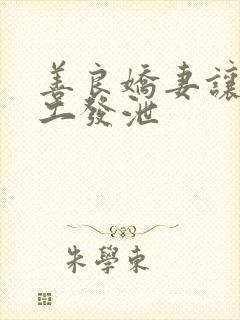 善良嬌妻讓
工發泄
朱學東